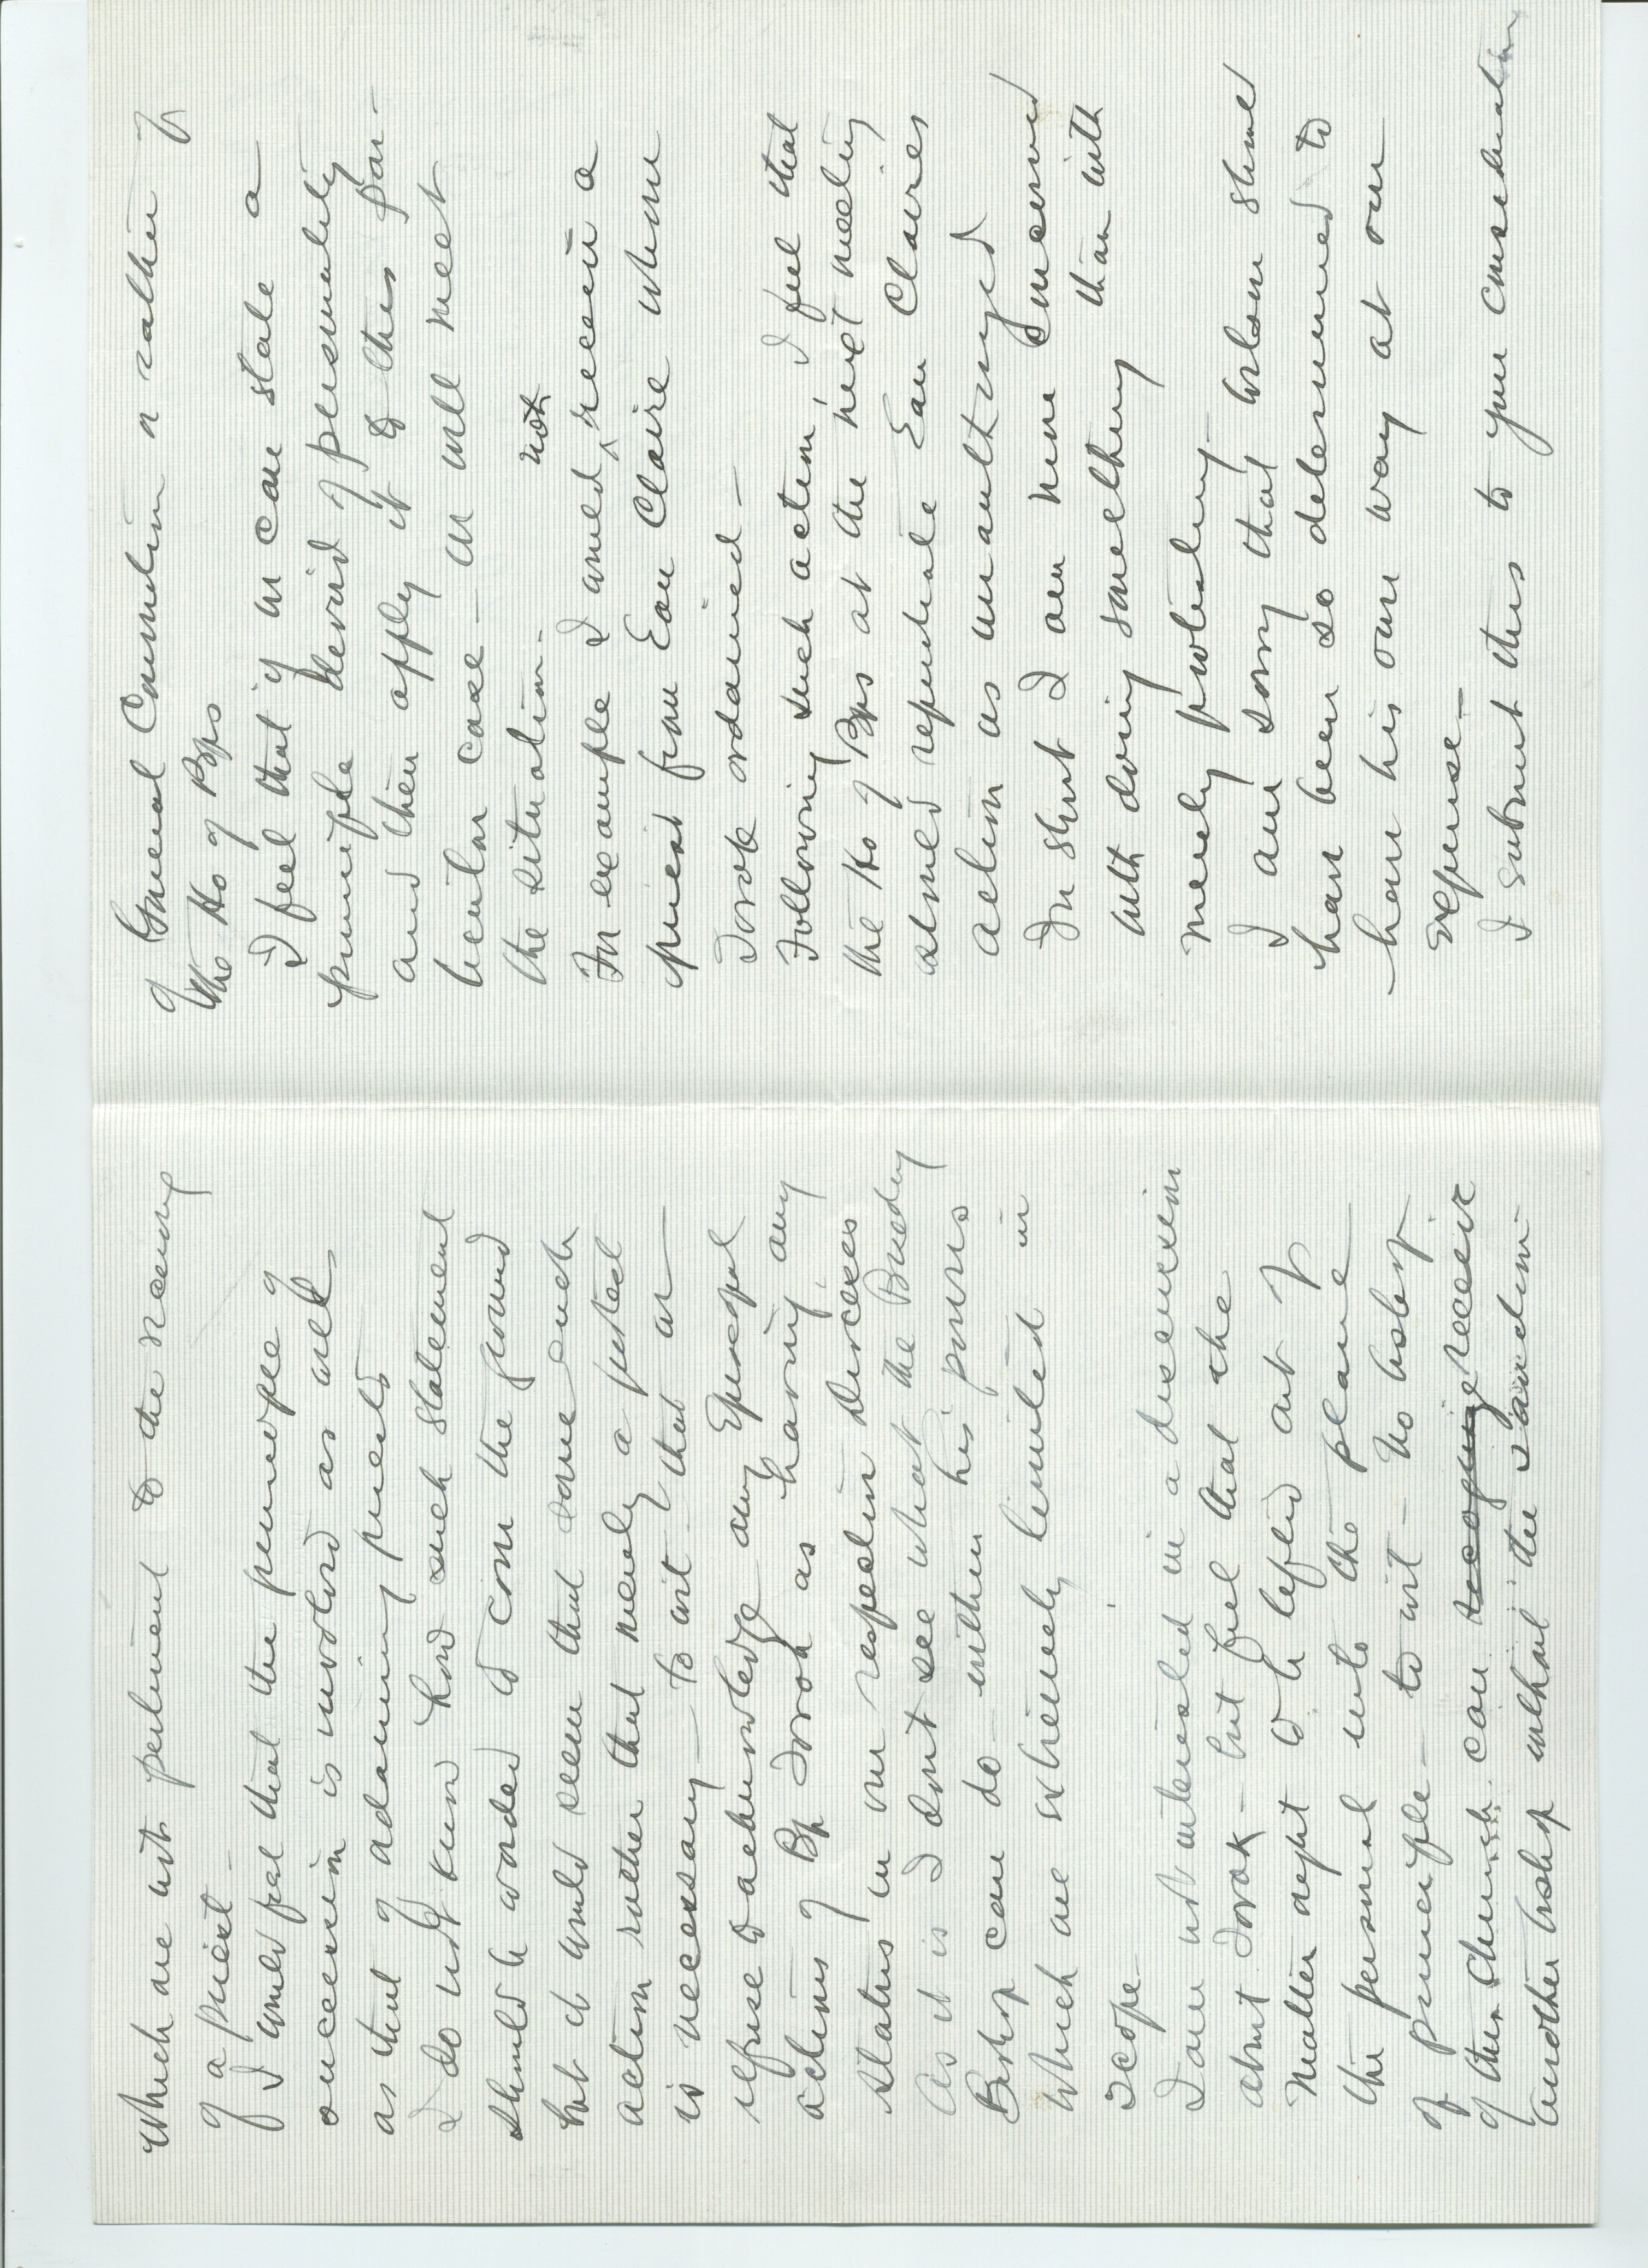 which are not pertinent to the Naeny
of a priest—
I would feel that the principle of
succession is involved as well
as that of ordaining priests
I do not know how such statement
should be worded to cover the ground
but it would seem that some such
action rather than merely a protest
is necessary— To wit— that we
refuse to acknowledge any Episcopal
actions of Bp Torok as having any
status in our respective Dioceses
As it is I dont see what the
Bishop can do— within his powers
which are extremely limited in
scope—
I am not interested in a discussion
about Torok— but feel that the
Matter ought to be lifted out of
the personal into the plane
of principle— to wit— No bishop
of this Church can recognize receive
another bishop without the sanction
of General Convention or rather of
the Ho of Bps
I feel that if we can state a
principle devoid of personality
and then apply it to this par-
ticular case— we will meet
the situation—
For example I would not receive a
priest from Eau Claire whom
Torok ordained—
Following such action, I feel that
the Ho of Bps at the next meeting
should repudiate Eau Claires
action as unauthorized
In short I am more concerned
with doing something than with
merely protesting—
I am sorry that Wilson should
have been so determined to
have his own way at our
expense—
I submit this to your consideration